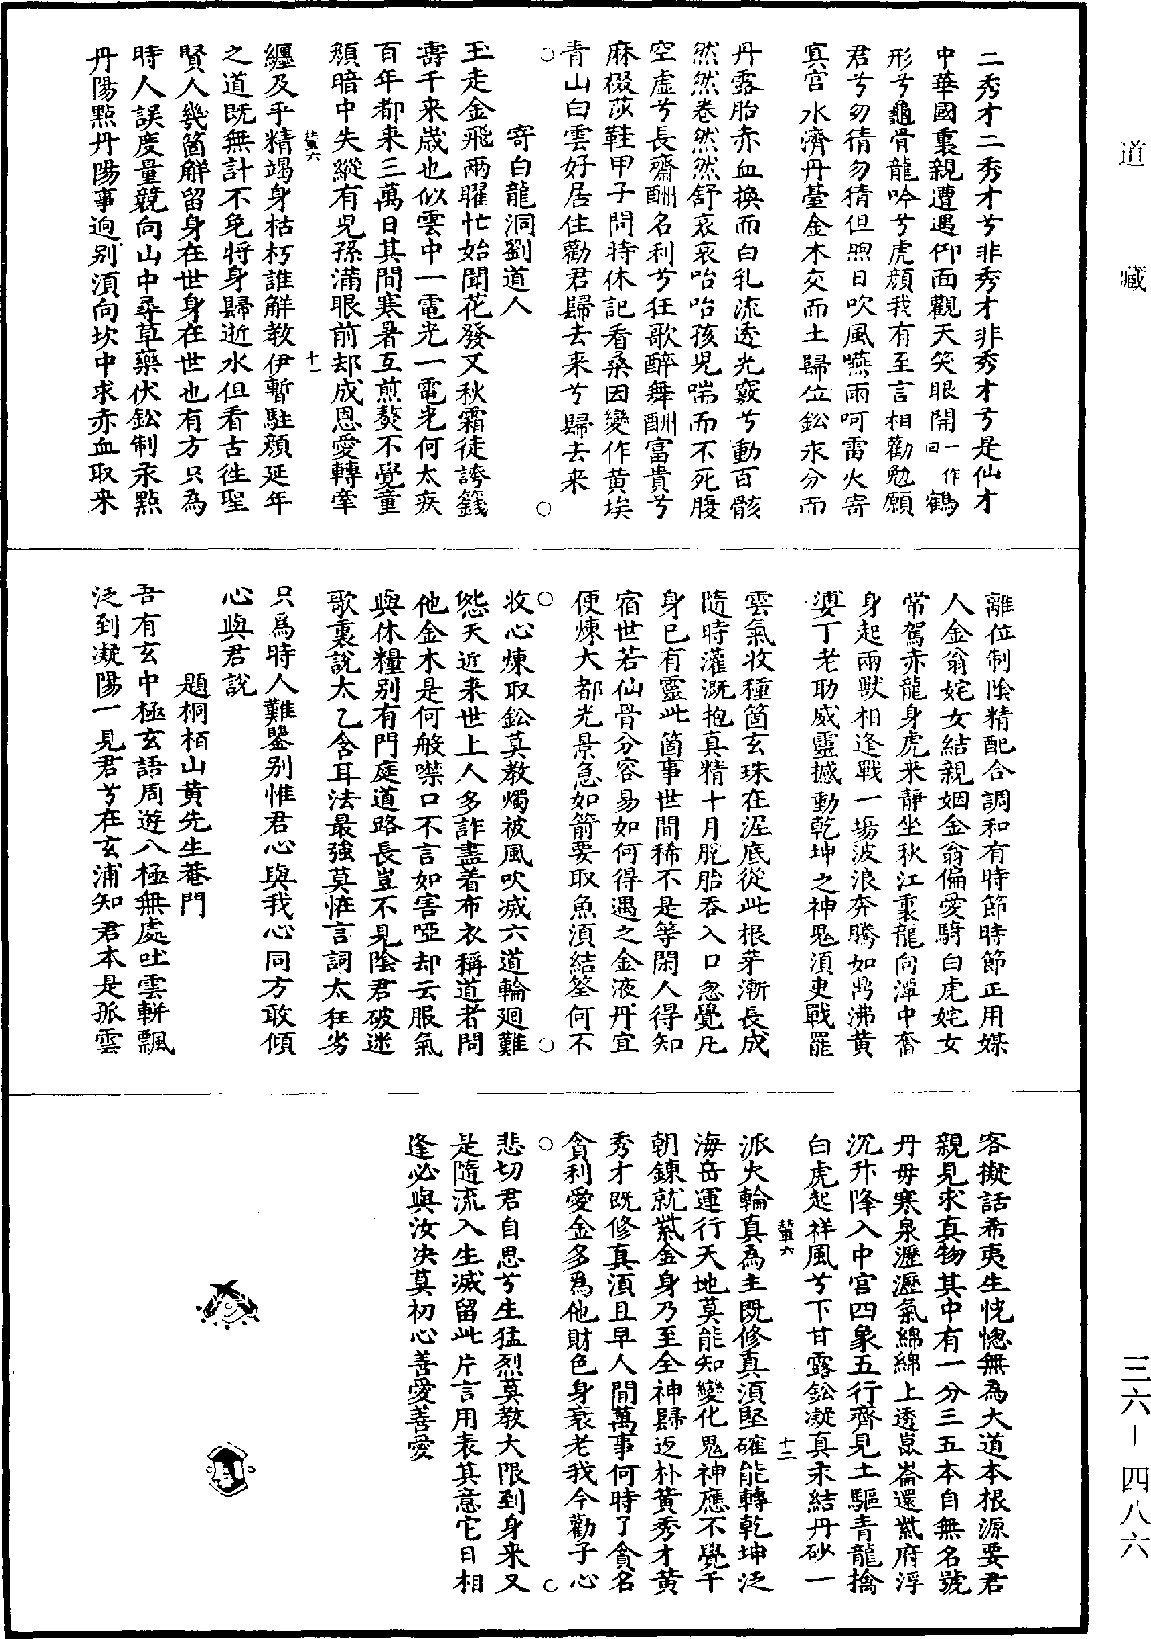 道藏
二秀才二秀才兮非秀才非秀才兮是仙才
中華國裏親遭遇仰面觀天笑眼開一作鶴回
形兮龜骨龍吟兮虎顔我有至言相勸勉願
君兮勿猜勿猜但煦日吹風嚥雨呵雷火寄
冥宫水濟丹臺金木交而土歸位鈆汞分而
丹露胎赤血換而白乳流透光竅兮動百骸
然然卷然然舒哀哀咍咍孩兒喘而不死腹
空虚兮長齋酬名利兮狂歌醉舞酬富貴兮
麻裰莎鞋甲子問時休記看桑因變作黄埃
青山白雲好居住勸君歸去來兮歸去來
寄白龍洞劉道人
玉走金飛兩曜忙始聞花發又秋霜徒誇籛
壽千來歲也似雲中一電光一電光何太疾
百年都來三萬日其間寒暑互煎熬不覺童
顔暗中失縱有兒孫滿眼前却成恩愛轉牽
十一
纏及乎精竭身枯朽誰解教伊暫駐顔延年
之道既無計不免將身歸逝水但看古徃聖
賢人幾箇解留身在世身在世也有方只為
時人誤度量競向山中尋草藥伏鈆制汞點
丹陽點丹陽事逈别須向坎中求赤血取來
離位制陰精配合調和有時節時節正用媒
人金翁姹女結親姻金翁偏愛騎白虎姹女
常駕赤龍身虎來靜坐秋江裏龍向潭中奮
身起兩獸相逢戰一場波浪奔騰如鼎沸黄
婆丁老助威靈撼動乾坤走神鬼須臾戰罷
雲氣收種箇玄珠在泥底從此根芽漸長成
隨時灌溉抱真精十月脱胎吞入口忽覺凡
身已有靈此箇事世間稀不是等閑人得知
宿世若仙骨分容易如何得遇之金液丹宜
便煉大都光景急如箭要取魚須結筌何不
收心煉取鈆莫教燭被風吹滅六道輪廻難
怨天近來世上人多詐盡着布衣稱道者問
他金木是何般噤口不言如害啞却云服氣
與休糧别有門庭道路長豈不見陰君破迷
歌裏說太乙含耳法最强莫恠言詞太狂劣
只爲時人難鑒别惟君心與我心同方敢傾
心與君說
題桐栢山黄先生菴門
吾有玄中極玄語周遊八極無處吐雲輧飄
泛到凝陽一見君兮在玄浦知君本是孤雲
客擬話希夷生恍惚無為大道本根源要君
親見求真物其中有一分三五本自無名號
丹母寒泉瀝瀝氣綿綿上透崑崙還紫府浮
沉升降入中宫四象五行齊見土驅青龍擒
白虎起祥風兮下甘露鈆凝真汞結丹砂一
十二
派火輪真為主既修真須堅確能轉乾坤泛
海岳運行天地莫能知變化鬼神應不覺千
朝鍊就紫金身乃至全神歸返朴黄秀才黄
秀才既修真須且早人間萬事何時了貪名
貪利愛金多爲他財色身衰老我今勸子心
悲切君自思兮生猛烈莫教大限到身來又
是隨流入生滅留此片言用表其意它日相
逢必與汝決莫初心善愛善愛
三六—四八六